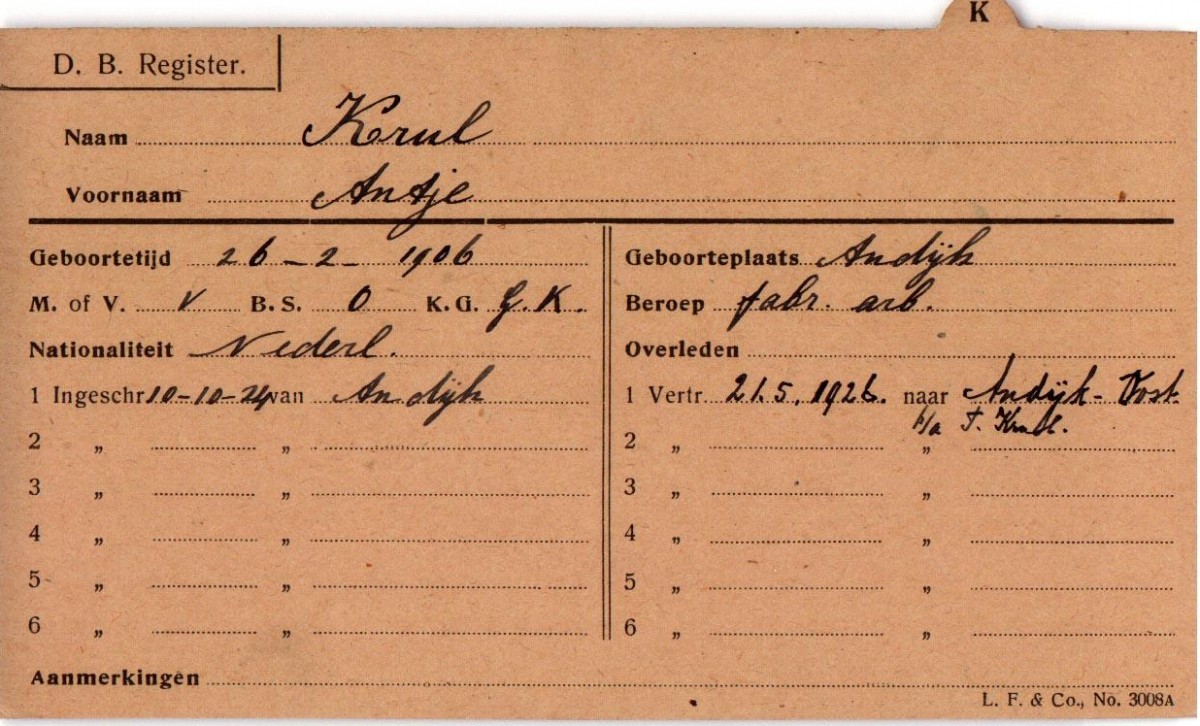 K
D. B. Register.
Naam Krul
Voornaam Antje
Geboortetijd 26-2-1906
M. of V. V B. S. O K. G. G. K.
Nationaliteit Nederl.
1 Ingeschr. 10-10-24 van Andijk
2 „ „
3 „ „
4 „ „
5 „ „
6 „ „
Geboorteplaats Andijk
Beroep fabr. arb.
Overleden
1 Vertr. 21.5.1926. naar Andijk-Oost
b/a F. Krul.
2 „ „
3 „ „
4 „ „
5 „ „
6 „ „
Aanmerkingen
L. F. & Co., No. 3008A